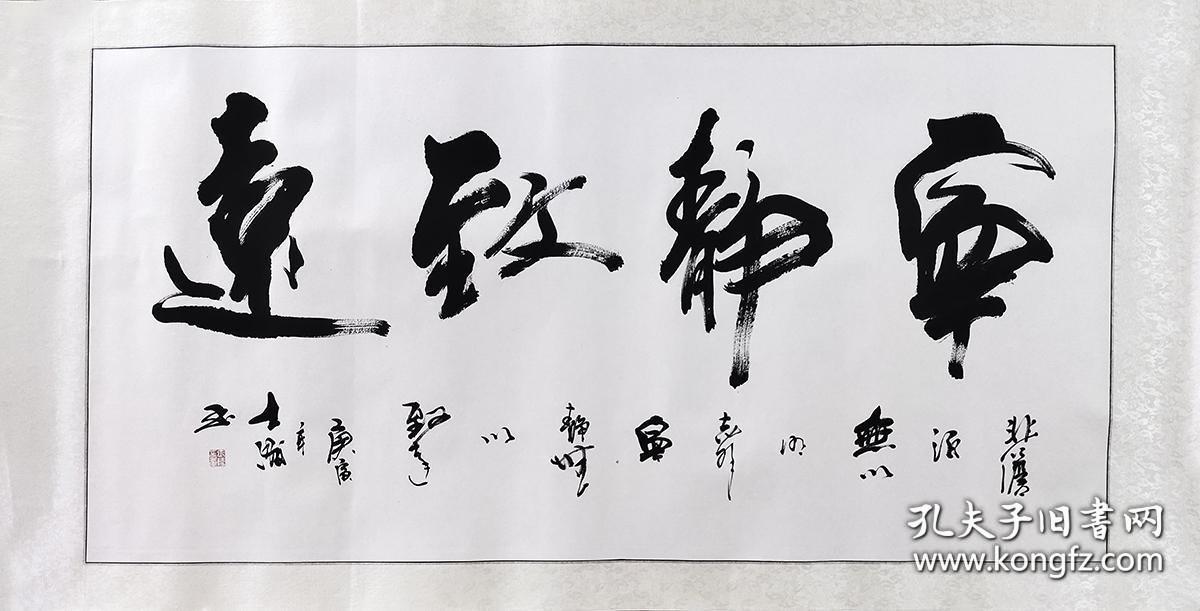 寧靜致遠
非澹泊無以明志非寧靜無以致遠
庚寅年
孔夫子旧書网
www.kongfz.com